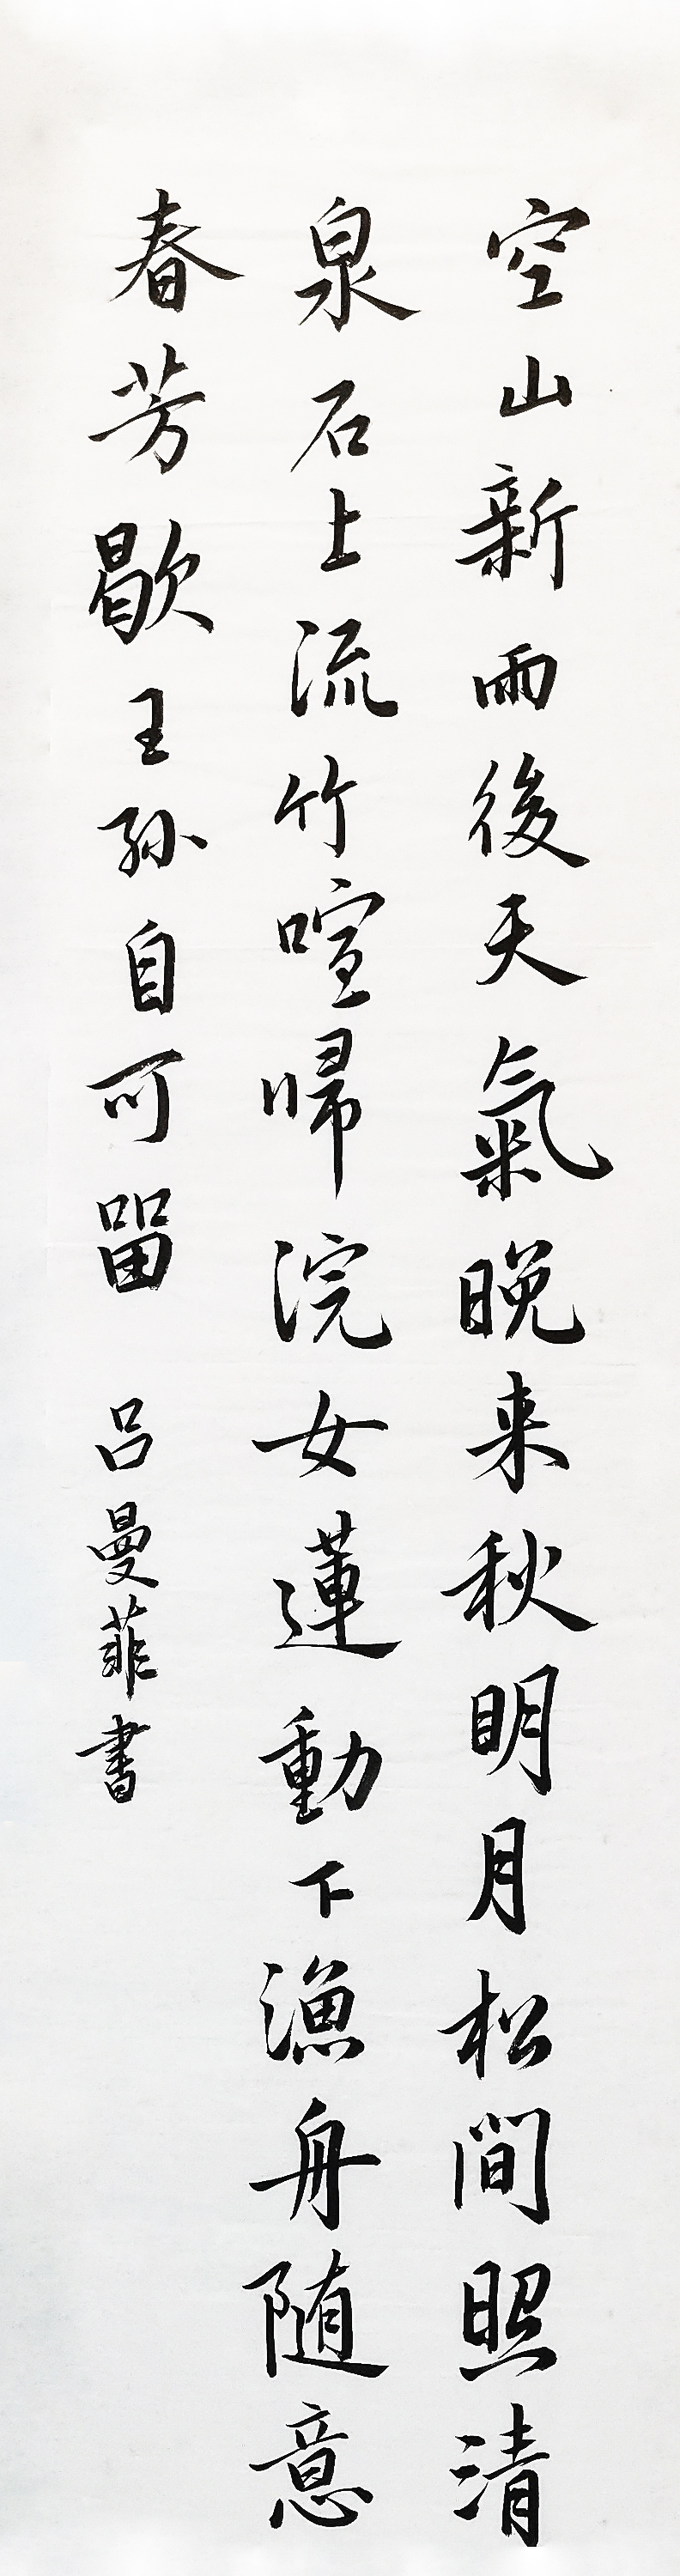 空山新雨後天氣晚来秋明月松間照清
泉石上流竹喧歸浣女蓮動下漁舟随意
春芳歇王孫自可留
吕曼菲書